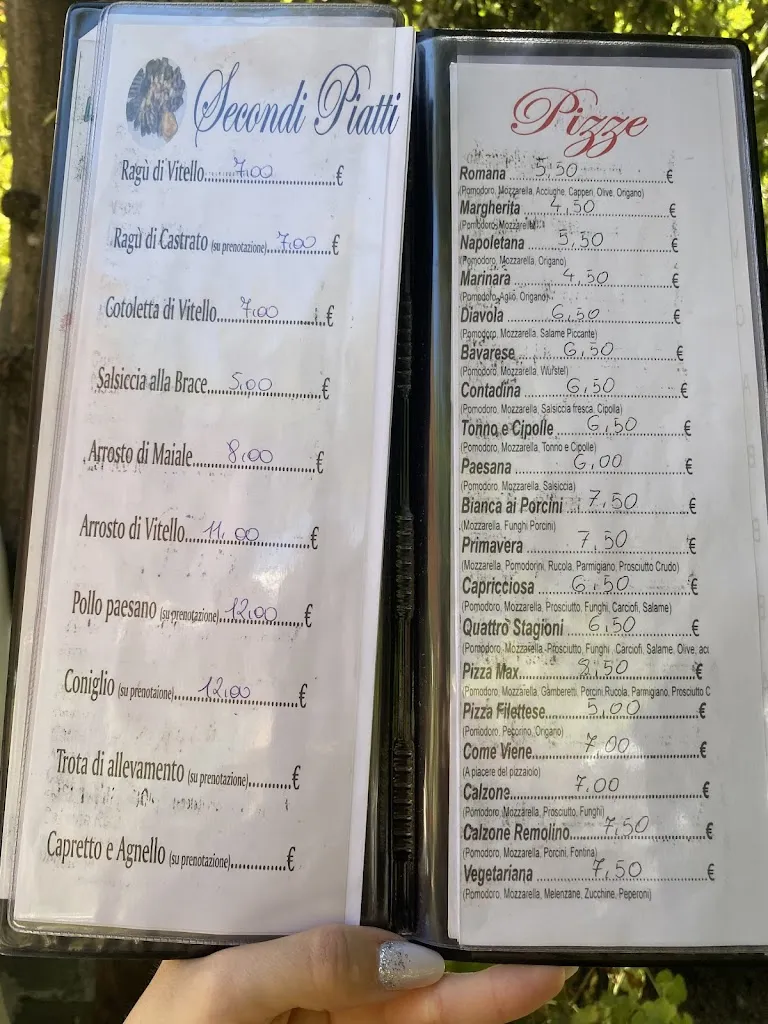 Secondi Piatti
Ragù di Vitello.....7,00.....€
Ragù di Castrato (su prenotazione)...7,00...€
Cotoletta di Vitello...7,00.....€
Salsiccia alla Brace...5,00.....€
Arrosto di Maiale.....8,00.....€
Arrosto di Vitello...11,00.....€
Pollo paesano (su prenotazione)..12,00....€
Coniglio (su prenotaione)....12,00.....€
Trota di allevamento (su prenotazione)..........€
Capretto e Agnello (su prenotazione)............€
Pizze
Romana.....5,50.....€
(Pomodoro, Mozzarella, Acciughe, Capperi, Olive, Origano)
Margherita.....4,50.....€
(Pomodoro, Mozzarella)
Napoletana.....5,50.....€
(Pomodoro, Mozzarella, Origano)
Marinara.....4,50.....€
(Pomodoro, Aglio, Origano)
Diavola.....6,50.....€
(Pomodoro, Mozzarella, Salame Piccante)
Bavarese.....6,50.....€
(Pomodoro, Mozzarella, Wu'stel)
Contadina.....6,50.....€
(Pomodoro, Mozzarella, Salsiccia fresca, Cipolla)
Tonno e Cipolle.....6,50.....€
(Pomodoro, Mozzarella, Tonno e Cipolle)
Paesana.....6,00.....€
(Pomodoro, Mozzarella, Salsiccia)
Bianca ai Porcini.....7,50.....€
(Mozzarella, Funghi Porcini)
Primavera.....7,50.....€
(Mozzarella, Pomodorini, Rucola, Parmigiano, Prosciutto Crudo)
Capricciosa.....6,50.....€
(Pomodoro, Mozzarella, Prosciutto, Funghi, Carciofi, Salame)
Quattro Stagioni.....6,50.....€
(Pomodoro, Mozzarella, Prosciutto, Funghi, Carciofi, Salame, Olive,
Pizza Max.....8,50.....€
(Pomodoro, Mozzarella, Gamberetti, Porcini,Rucola, Parmigiano, Prosciutto C
Pizza Filettese.....5,00.....€
(Pomodoro, Pecorino, Origano)
Come Viene.....7,00.....€
(A piacere del pizzaiolo)
Calzone.....7,00.....€
(Pomodoro, Mozzarella, Prosciutto, Funghi)
Calzone Remolino.....7,50.....€
(Pomodoro, Mozzarella, Porcini, Fontina)
Vegetariana.....7,50.....€
(Pomodoro, Mozzarella, Melenzane, Zucchine, Peperoni)